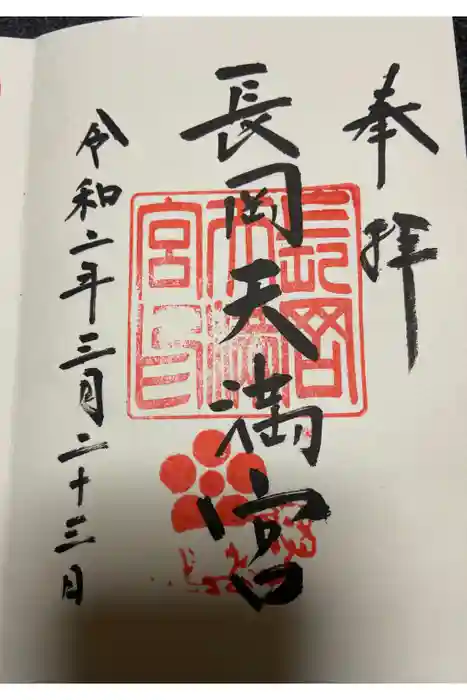 奉拝
長岡天満宮
令和二年三月二十三日
長岡天満宮印